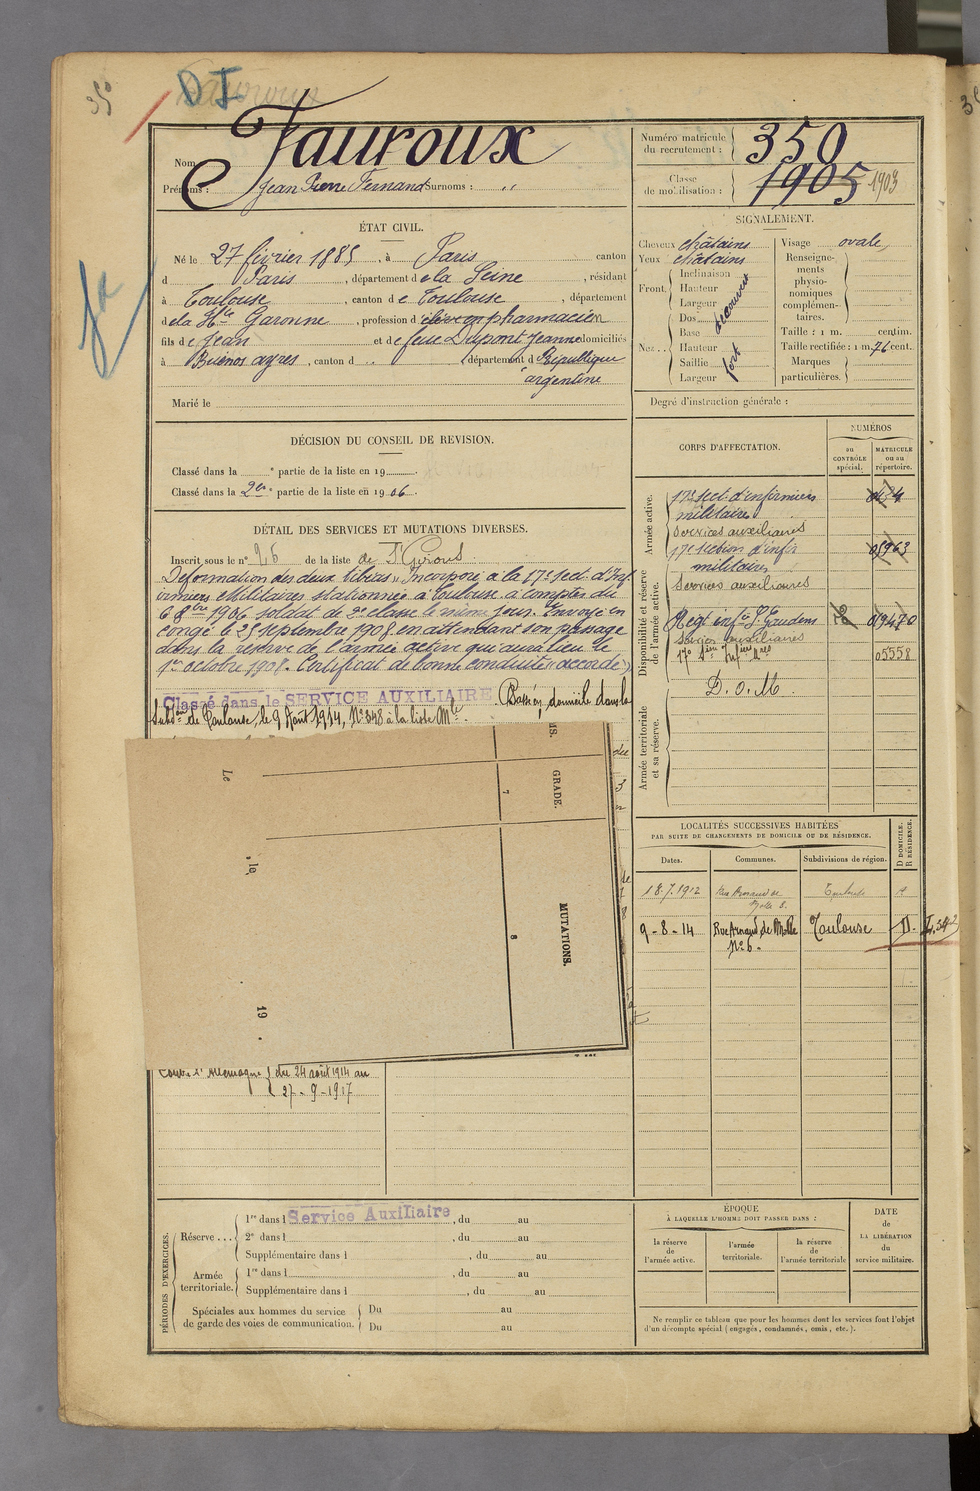 35
D I
Nom
Fauroux
Prénoms : Jean Pierre Fernand Surnoms : "
Numéro matricule du recrutement : 350
Classe de mobilisation : 1905 1903
ÉTAT CIVIL.
Né le 27 février 1885, à Paris canton
d Paris, département de la Seine, résidant
à Toulouse, canton de Toulouse, département
de la Hte Garonne, profession d'élève en pharmacien
fils de Jean et de feue Dupont Jeanne domiciliés
à Buenos ayres, canton d " département de République
argentine
Marié le
SIGNALEMENT.
Cheveux châtains
Yeux châtains
Front. Inclinaison
Hauteur
Largeur
découvert
Nez . . Dos
Base
Hauteur
Saillie
Largeur
fort
Visage ovale
Renseignements physionomiques complémentaires.
Taille : 1 m. centim.
Taille rectifiée : 1 m. 76 cent.
Marques particulières.
Degré d'instruction générale :
DÉCISION DU CONSEIL DE REVISION.
Classé dans la e partie de la liste en 19
Classé dans la 2e partie de la liste en 1906.
DÉTAIL DES SERVICES ET MUTATIONS DIVERSES.
Inscrit sous le no 26 de la liste de St Girons
Déformation des deux tibias. Incorporé à la 17e Sect. d'Inf
irmiers Militaires stationnée à Toulouse à compter du
6 8bre 1906 soldat de 2e classe le même jour. Envoyé en
congé le 25 septembre 1908 en attendant son passage
dans la réserve de l'armée active qui aura lieu le
1er octobre 1908. Certificat de bonne conduite "accordé"
Classé dans le SERVICE AUXILIAIRE
Passé en domicile dans la
Subdon de Toulouse, le 9 Août 1914, No 348 à la liste Mle.
Le
, le
19
GRADE.
7
MUTATIONS.
8
Contre l'Allemagne du 24 août 1914 au
27-9-1917
CORPS D'AFFECTATION.
NUMÉROS
au CONTRÔLE spécial.
MATRICULE ou au répertoire.
Armée active.
17e sect. d'infirmiers
militaires
Services auxiliaires
17e section d'infir
militaires 05963
Disponibilité et réserve de l'armée active.
Services auxiliaires
Regt infie St Gaudens 019470
Services auxiliaires
17e Son Infiers Mres 05558
D. o. M.
Armée territoriale et sa réserve.
LOCALITÉS SUCCESSIVES HABITÉES
PAR SUITE DE CHANGEMENTS DE DOMICILE OU DE RÉSIDENCE.
Dates. Communes. Subdivisions de région. D DOMICILE. R RÉSIDENCE.
18.7.1912 Rue Arnaud de Toulouse R
9-8-14 Rue Arnaud de Molle Toulouse D.
No 6.
PÉRIODES D'EXERCICES.
Réserve . . . 1re dans l Service Auxiliaire, du au
2e dans l , du au
Supplémentaire dans l , du au
Armée territoriale. 1re dans l , du au
Supplémentaire dans l , du au
Spéciales aux hommes du service de garde des voies de communication. Du au
Du au
ÉPOQUE
À LAQUELLE L'HOMME DOIT PASSER DANS :
la réserve de l'armée active.
l'armée territoriale.
la réserve de l'armée territoriale
DATE de LA LIBÉRATION du service militaire.
Ne remplir ce tableau que pour les hommes dont les services font l'objet
d'un décompte spécial (engagés, condamnés, omis, etc.).